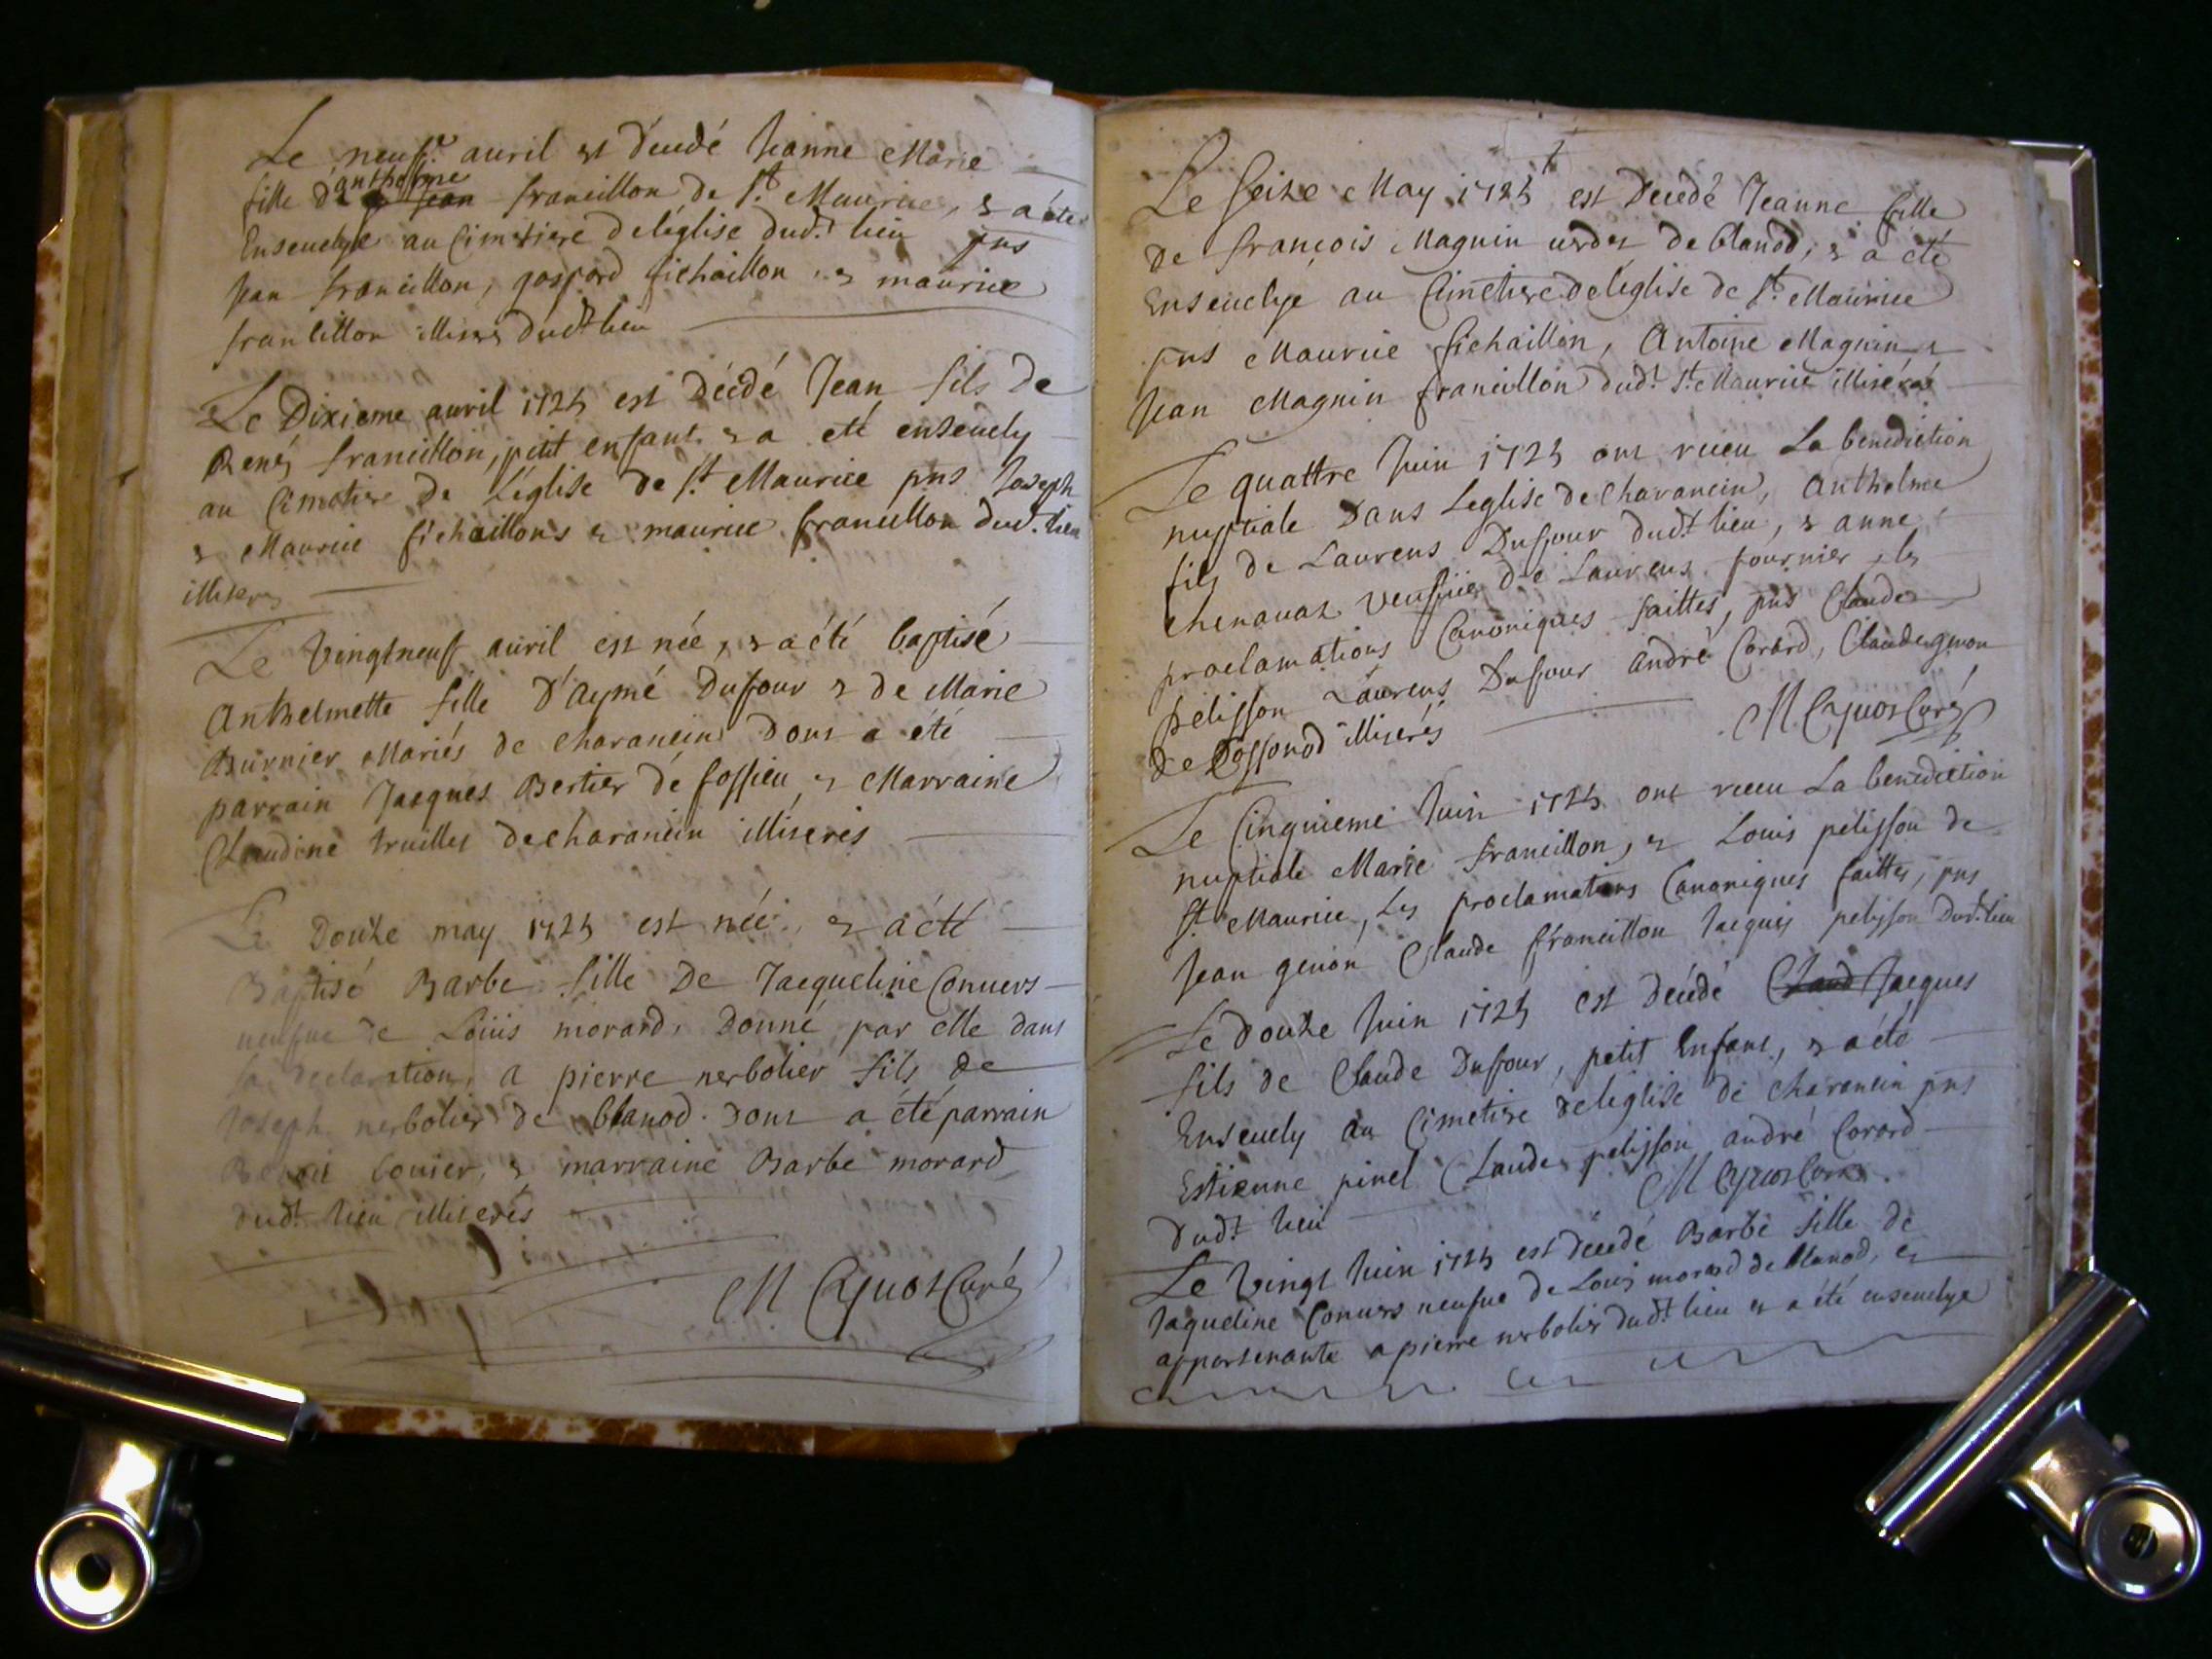 Le neufe. auril est décédé Jeanne Marie
fille d'anthelme francillon de St. Maurice, & a été
Enseuelye au Cimetiere de léglise dud.t lieu pns
Jean francillon, gaspard fichaillon, & maurice
francillon illiterés dud.t lieu
Le Dixieme auril 1725 est décédé Jean fils de
René francillon, petit enfant & a eté enseuely
au Cimetiere de L'église de St. Maurice pns Joseph
& Maurice fichaillons & maurice francillon dud.t lieu
illiterés
Le Vingtneuf auril est née, & a été baptisé
Anthelmette fille D'aymé Dufour & de Marie
Burnier Mariés de charancin Dont a été
parrain Jacques Bertier de fossieu & Marraine
Claudine truillet de charancin illiterés
Le Douze may 1725 est née, & a été
Baptisé Barbe fille De Jacqueline Conuers
ueufue de Loüis morard, Donné par elle dans
sa declaration, a pierre nerbolier fils de
Joseph nerbolier de blanod. Dont a été parrain
Benoit bouier, & marraine Barbe morard
dud.t lieu illiterés
M Cayuot Curé
Le seize May 1725 est Decédé Jeanne fille
de françois Magnin de blanod, & a été
Enseuelye au Cimetiere de léglise de St. Maurice
pns Maurice fichaillon, Antoine Magnin, &
Jean Magnin francillon dud.t St. Maurice illiterés
Le quattre Juin 1725 ont receu La benediction
nuptiale Dans Leglise de Charancin, Anthelme
fils de Laurens Dufour dud.t lieu, & anne
chenauaz veufue de Laurens fournier, les
proclamations Canoniques faittes, pns Claude
pelisson Laurens Dufour andré Corard, Claude
de Cossonod illiterés
M Cayuot Curé
Le Cinquieme Juin 1725 ont receu La benediction
nuptiale Marie francillon, & Louis pelisson de
St. Maurice, Les proclamations Canoniques faittes, pns
Jean genon Claude francillon Jacques pelisson Dud.t lieu
Le Douze Juin 1725 est décédé Claud Jacques
fils de Claude Dufour, petit Enfant, & a été
Enseuely au Cimetiere de léglise de charancin pns
Estienne pinel Claude pelisson andré Corard
Dud.t lieu M Cayuot Curé
Le Vingt Juin 1725 est décédé Barbe fille de
Jaqueline Conuers ueufue de Louis morard de blanod, et
appartenante a pierre nerbolier dud.t lieu & a été enseuelye